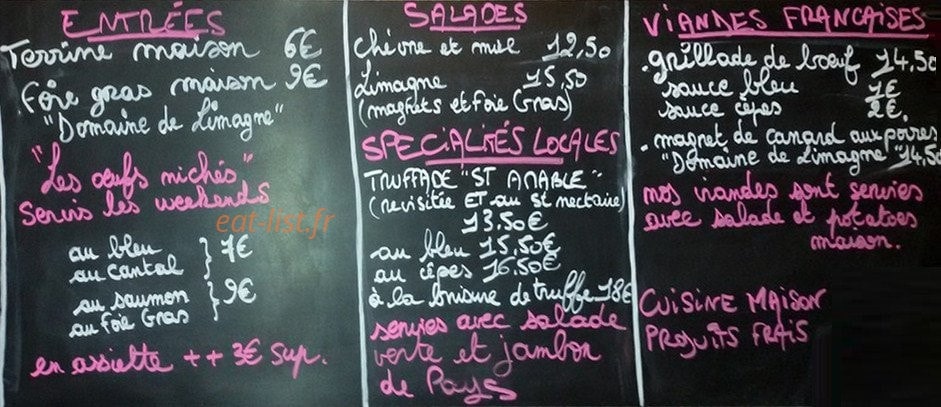 ENTRÉES
Terrine maison 6€
Foie gras maison 9€
"Domaine de Limagne"
"Les œufs nichés"
Servis les weekends
eat-list.fr
au bleu
au cantal } 7€
au saumon
au foie Gras } 9€
en assiette ++ 3€ sup.
SALADES
chèvre et miel 12,50
Limagne 15,50
(magrets et foie Gras)
SPECIALITÉS LOCALES
TRUFFADE "ST AMABLE"
(revisitée ET au St nectaire)
13.50€
au bleu 15.50€
au cèpes 16.50€
à la brisure de truffe 18€
servies avec salade
verte et jambon
de Pays
VIANDES FRANCAISES
. grillade de boeuf 14,50
sauce bleu 1€
sauce cèpes 2€.
. magret de canard aux poires
"Domaine de Limagne" 14,50
nos viandes sont servies
avec salade et potatoes
maison.
CUISINE MAISON
PRODUITS FRAIS